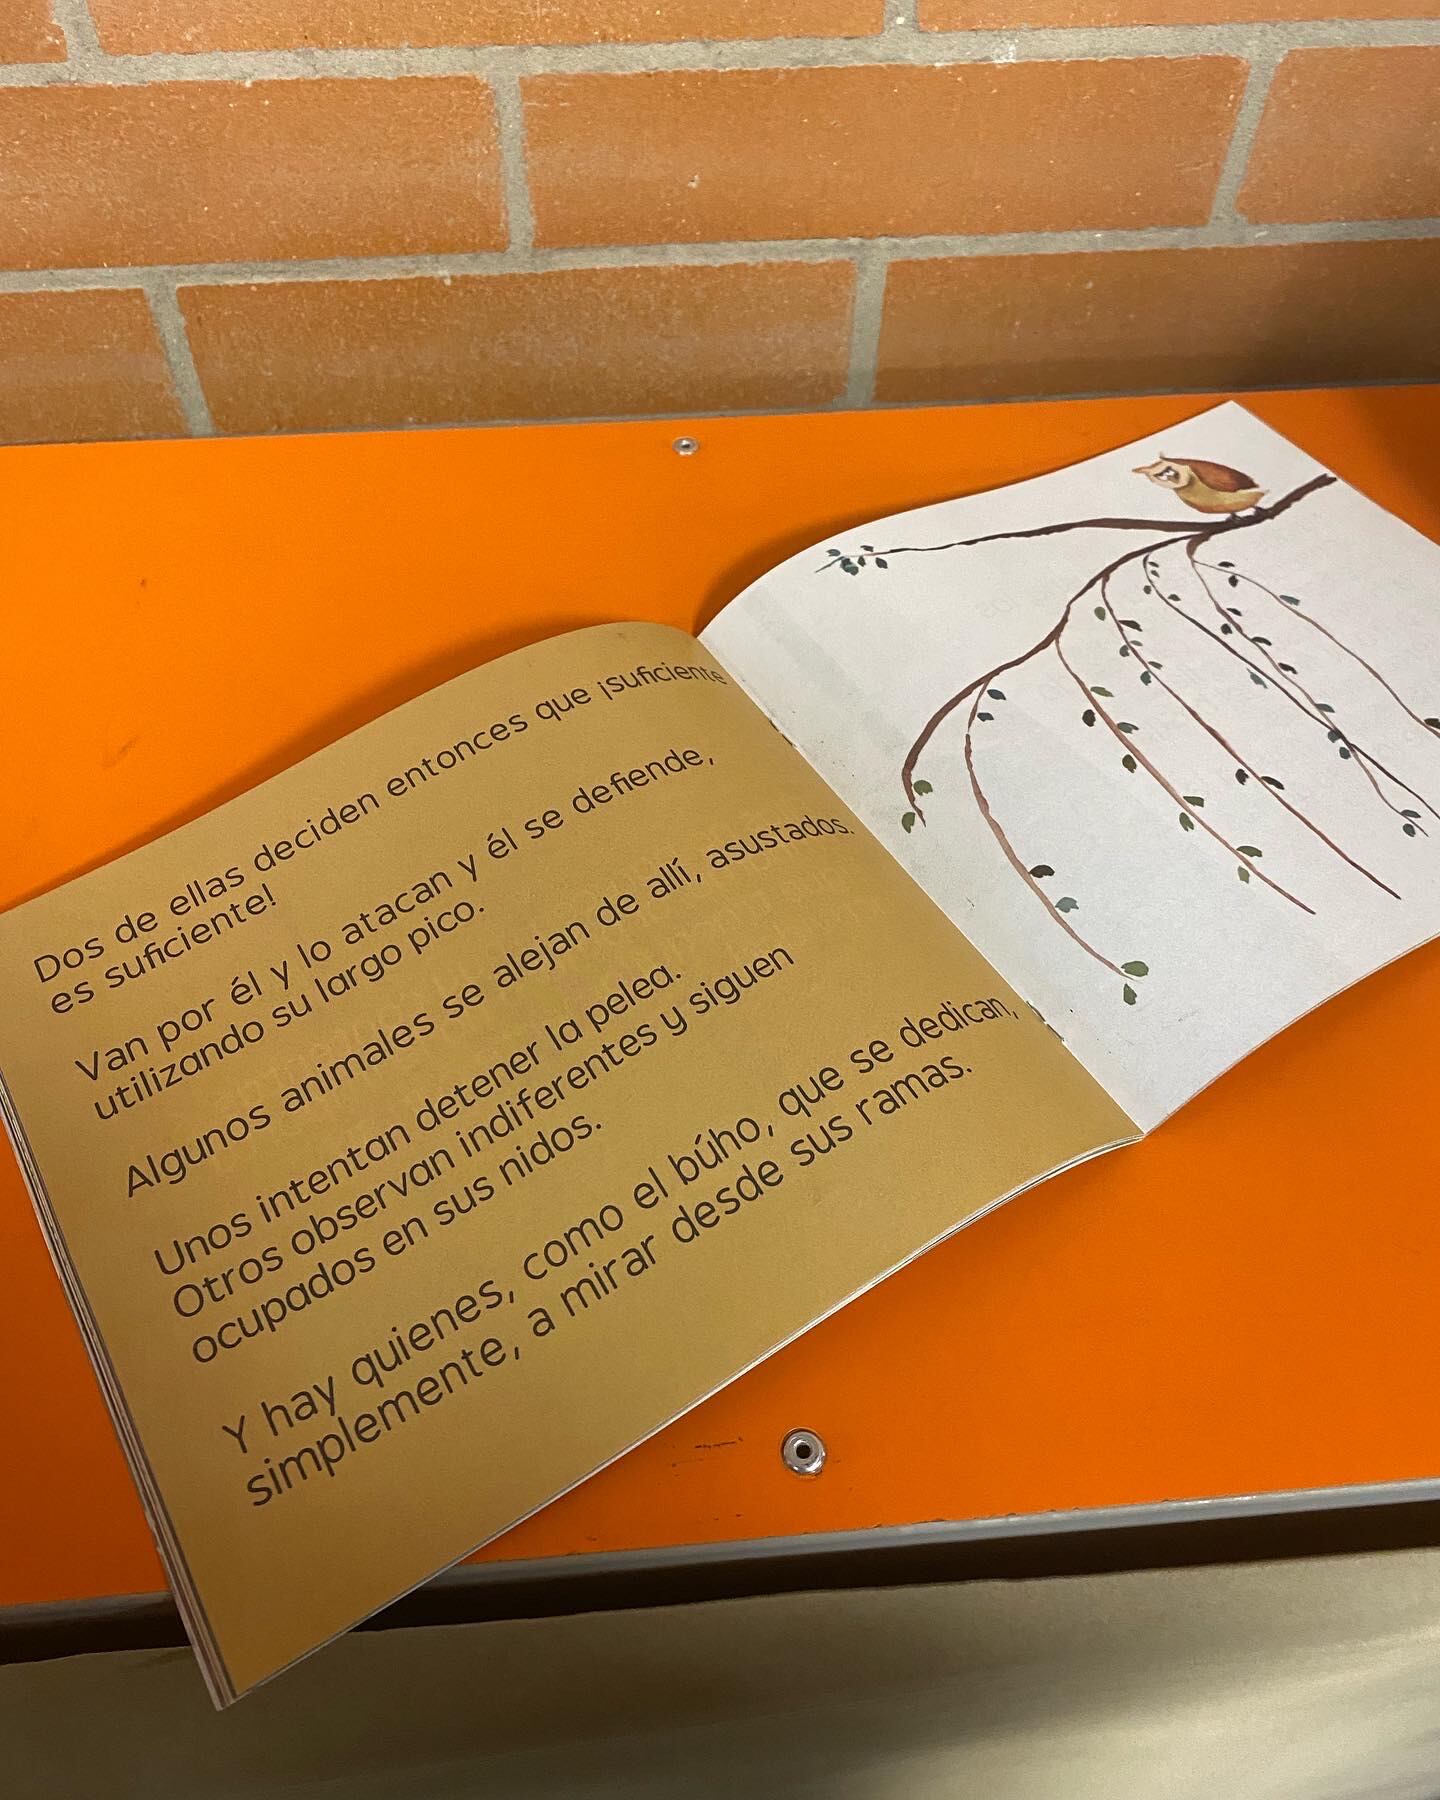 Dos de ellas deciden entonces que ¡suficiente
es suficiente!
Van por él y lo atacan y él se defiende,
utilizando su largo pico.
Algunos animales se alejan de allí, asustados.
Unos intentan detener la pelea.
Otros observan indiferentes y siguen
ocupados en sus nidos.
Y hay quienes, como el búho, que se dedican,
simplemente, a mirar desde sus ramas.